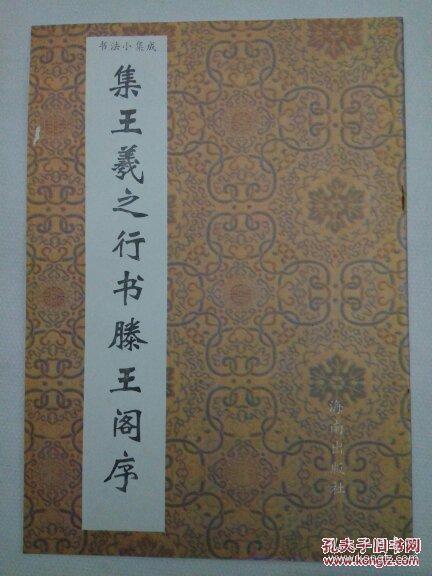 书法小集成
集王羲之行书滕王阁序
海南出版社
孔夫子旧书网